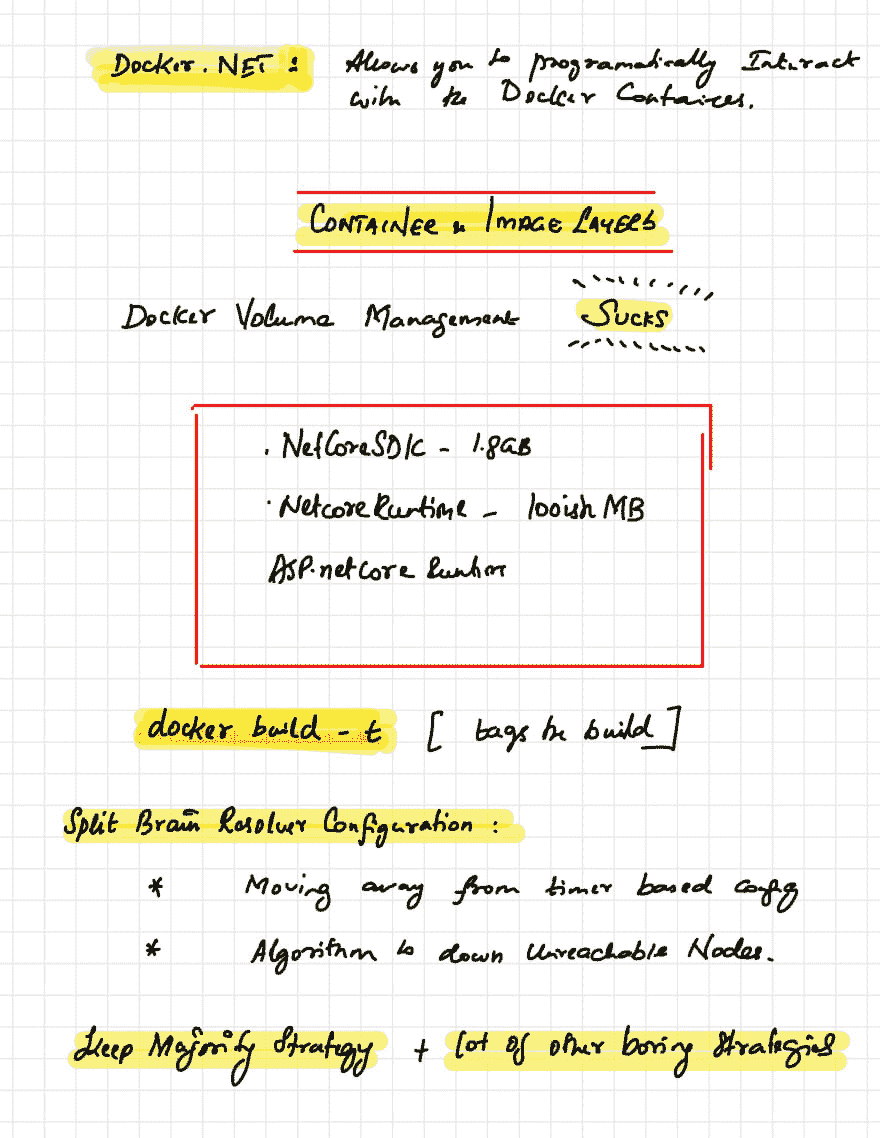 Docker.NET : Allows you to programatically Interact
with the Docker Containers.
CONTAINER & IMAGE LAYERS
Docker Volume Management SUCKS
. NetCoreSDK - 1.8GB
. Netcore Runtime - 100ish MB
ASP.netcore Runtime
docker build - t [ tags the build ]
Split Brain Resolver Configuration :
* Moving away from timer based config
* Algorithm to down Unreachable Nodes.
Keep Majority Strategy + lot of other boring Strategies